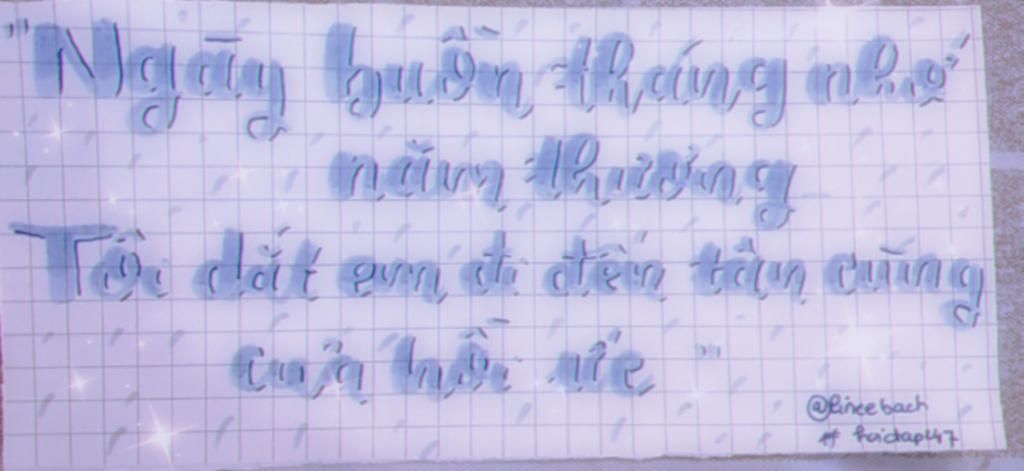 "Ngày buồn tháng nhớ
năm thương
Tôi dắt em đi đến tận cùng
của hồi ức"
# hoidap247